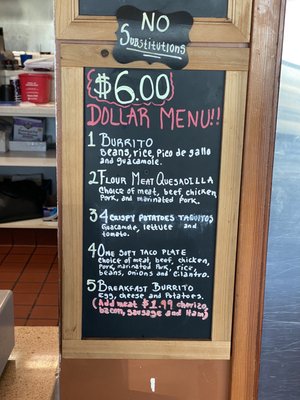 NO
Substitutions
$6.00
DOLLAR MENU!!
1 BURRITO
Beans, rice, Pico de gallo
and guacamole.
2 FLOUR MEAT QUESADILLA
Choice of meat, beef, chicken
Pork, and marinated Pork.
3 4 CRISPY POTATOES TAQUITOS
Guacamole, lettuce and
tomato.
4 ONE SOFT TACO PLATE
Choice of meat, beef, chicken,
Pork, marinated Pork, rice,
beans, onions and cilantro.
5 BREAKFAST BURRITO
Egg, cheese and Potatoes.
(Add meat $1.99 chorizo,
bacon, sausage and Ham)